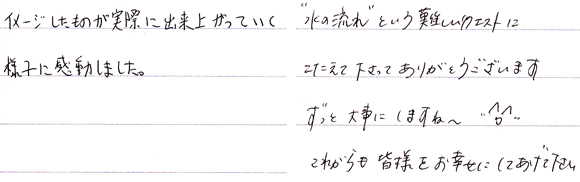 イメージしたものが実際に出来上がっていく
様子に感動しました。
"水の流れ"という難しいリクエストに
こたえて下さってありがとうございます
ずっと大事にしますね〜 ^^
これからも皆様をお幸せにしてあげて下さい